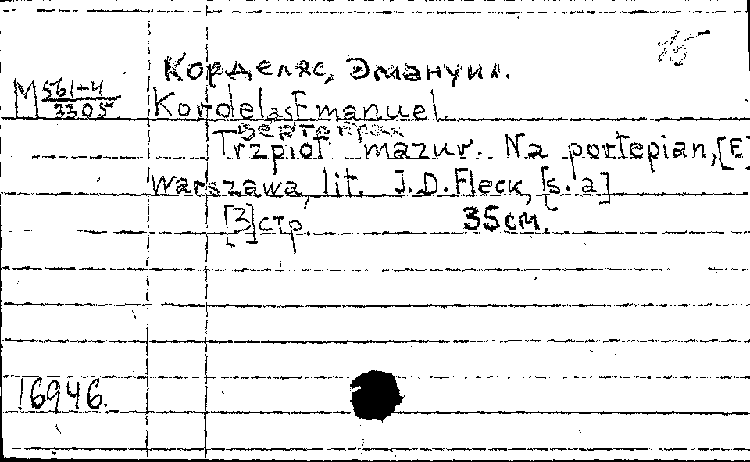 Корделяс, Эмануил.
М 561-4
3305
Kordelas Emanuel
Вертопрах
Trzpiot mazur. Na portepian, [E]
Warszawa, lit. J.D.Fleck, [s.a]
[3] стр. 35 см.
16946.